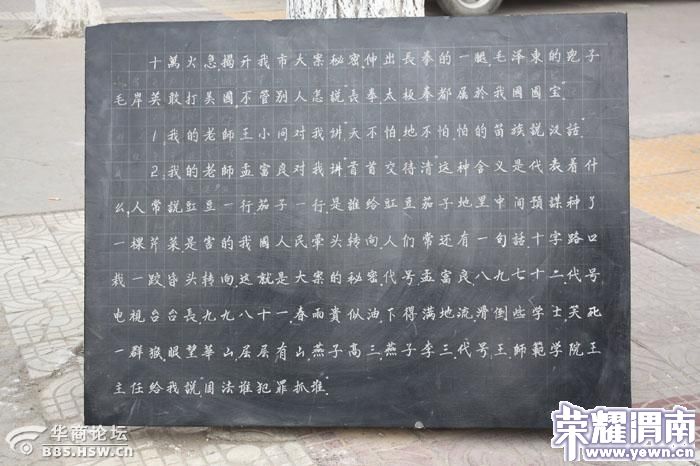 十萬火急,揭开我市大案秘密,伸出長拳的一腿,毛泽東的児子
毛岸英敢打美國,不管别人怎説"長拳太极拳都属於我國國宝"。
1,我的老師王小同对我讲"天不怕,地不怕,怕的苗族説汉話"
2,我的老師孟富良对我讲"首首交待清"这种含义是代表着什
么,人常説豇豆一行茄子一行,是誰给豇豆茄子地里中间預謀种了
一棵芹菜,是害的我國人民晕头转向,人们常还有一句話,十字路口
栽一跤昏头转向,这就是大案的秘密,代号孟富良,八九七十二,代号
电视台台長,九九八十一,春雨貴似油,下得满地流,滑倒些学士,笑死
一群猴,眼望華山层层有山,燕子高三,燕子李三,代号王,師範学院王
主任给我説"国法谁犯罪抓誰.
华商论坛
BBS.HSW.cn
荣耀渭南
www.yewn.cn